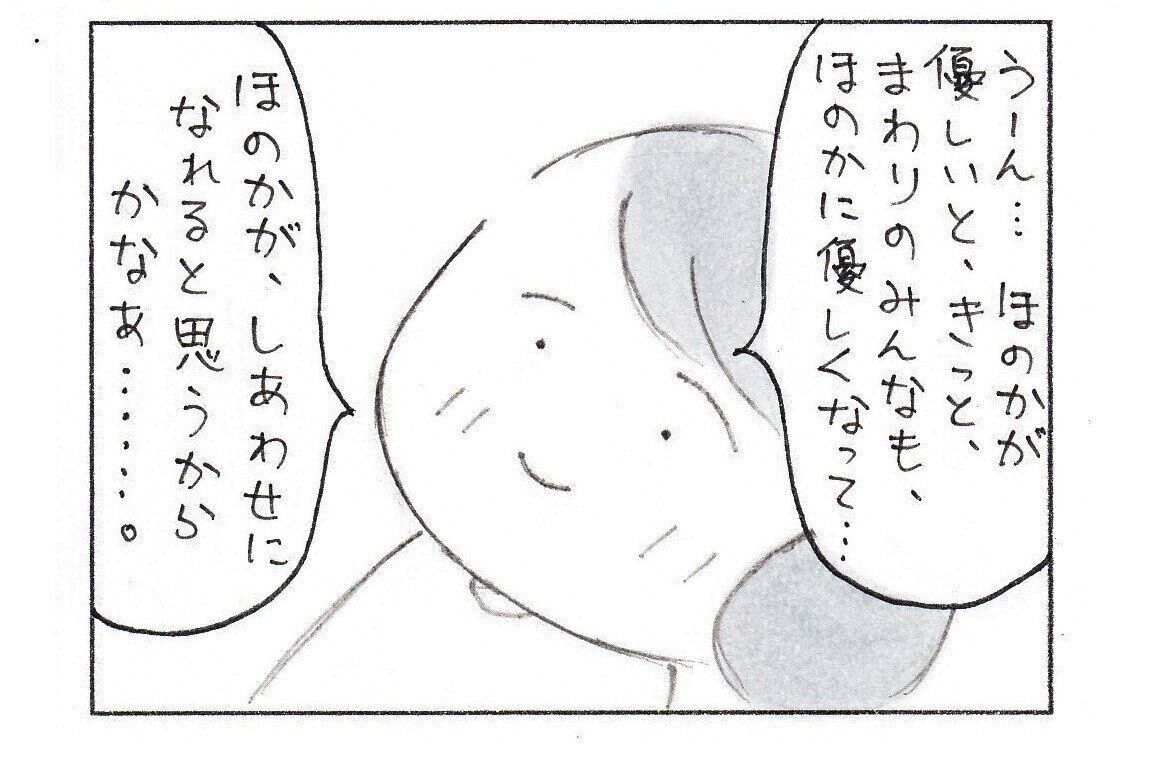 うーん… ほのかが
優しいと、きっと、
まわりのみんなも、
ほのかに優しくなって…
ほのかが、しあわせに
なれると思うから
かなぁ……。